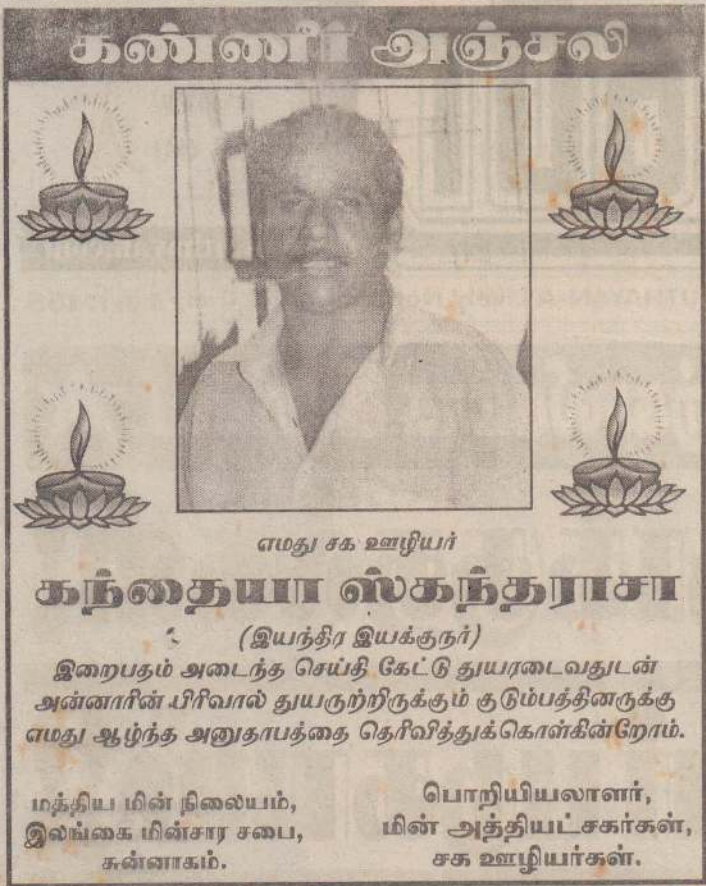 கண்ணீர் அஞ்சலி
எமது சக ஊழியர்
கந்தையா ஸ்கந்தராசா
(இயந்திர இயக்குநர்)
இறைபதம் அடைந்த செய்தி கேட்டு துயரடைவதுடன்
அன்னாரின் பிரிவால் துயருற்றிருக்கும் குடும்பத்தினருக்கு
எமது ஆழ்ந்த அனுதாபத்தை தெரிவித்துக்கொள்கின்றோம்.
மத்திய மின் நிலையம்,
இலங்கை மின்சார சபை,
சுன்னாகம்.
பொறியியலாளர்,
மின் அத்தியட்சகர்கள்,
சக ஊழியர்கள்.